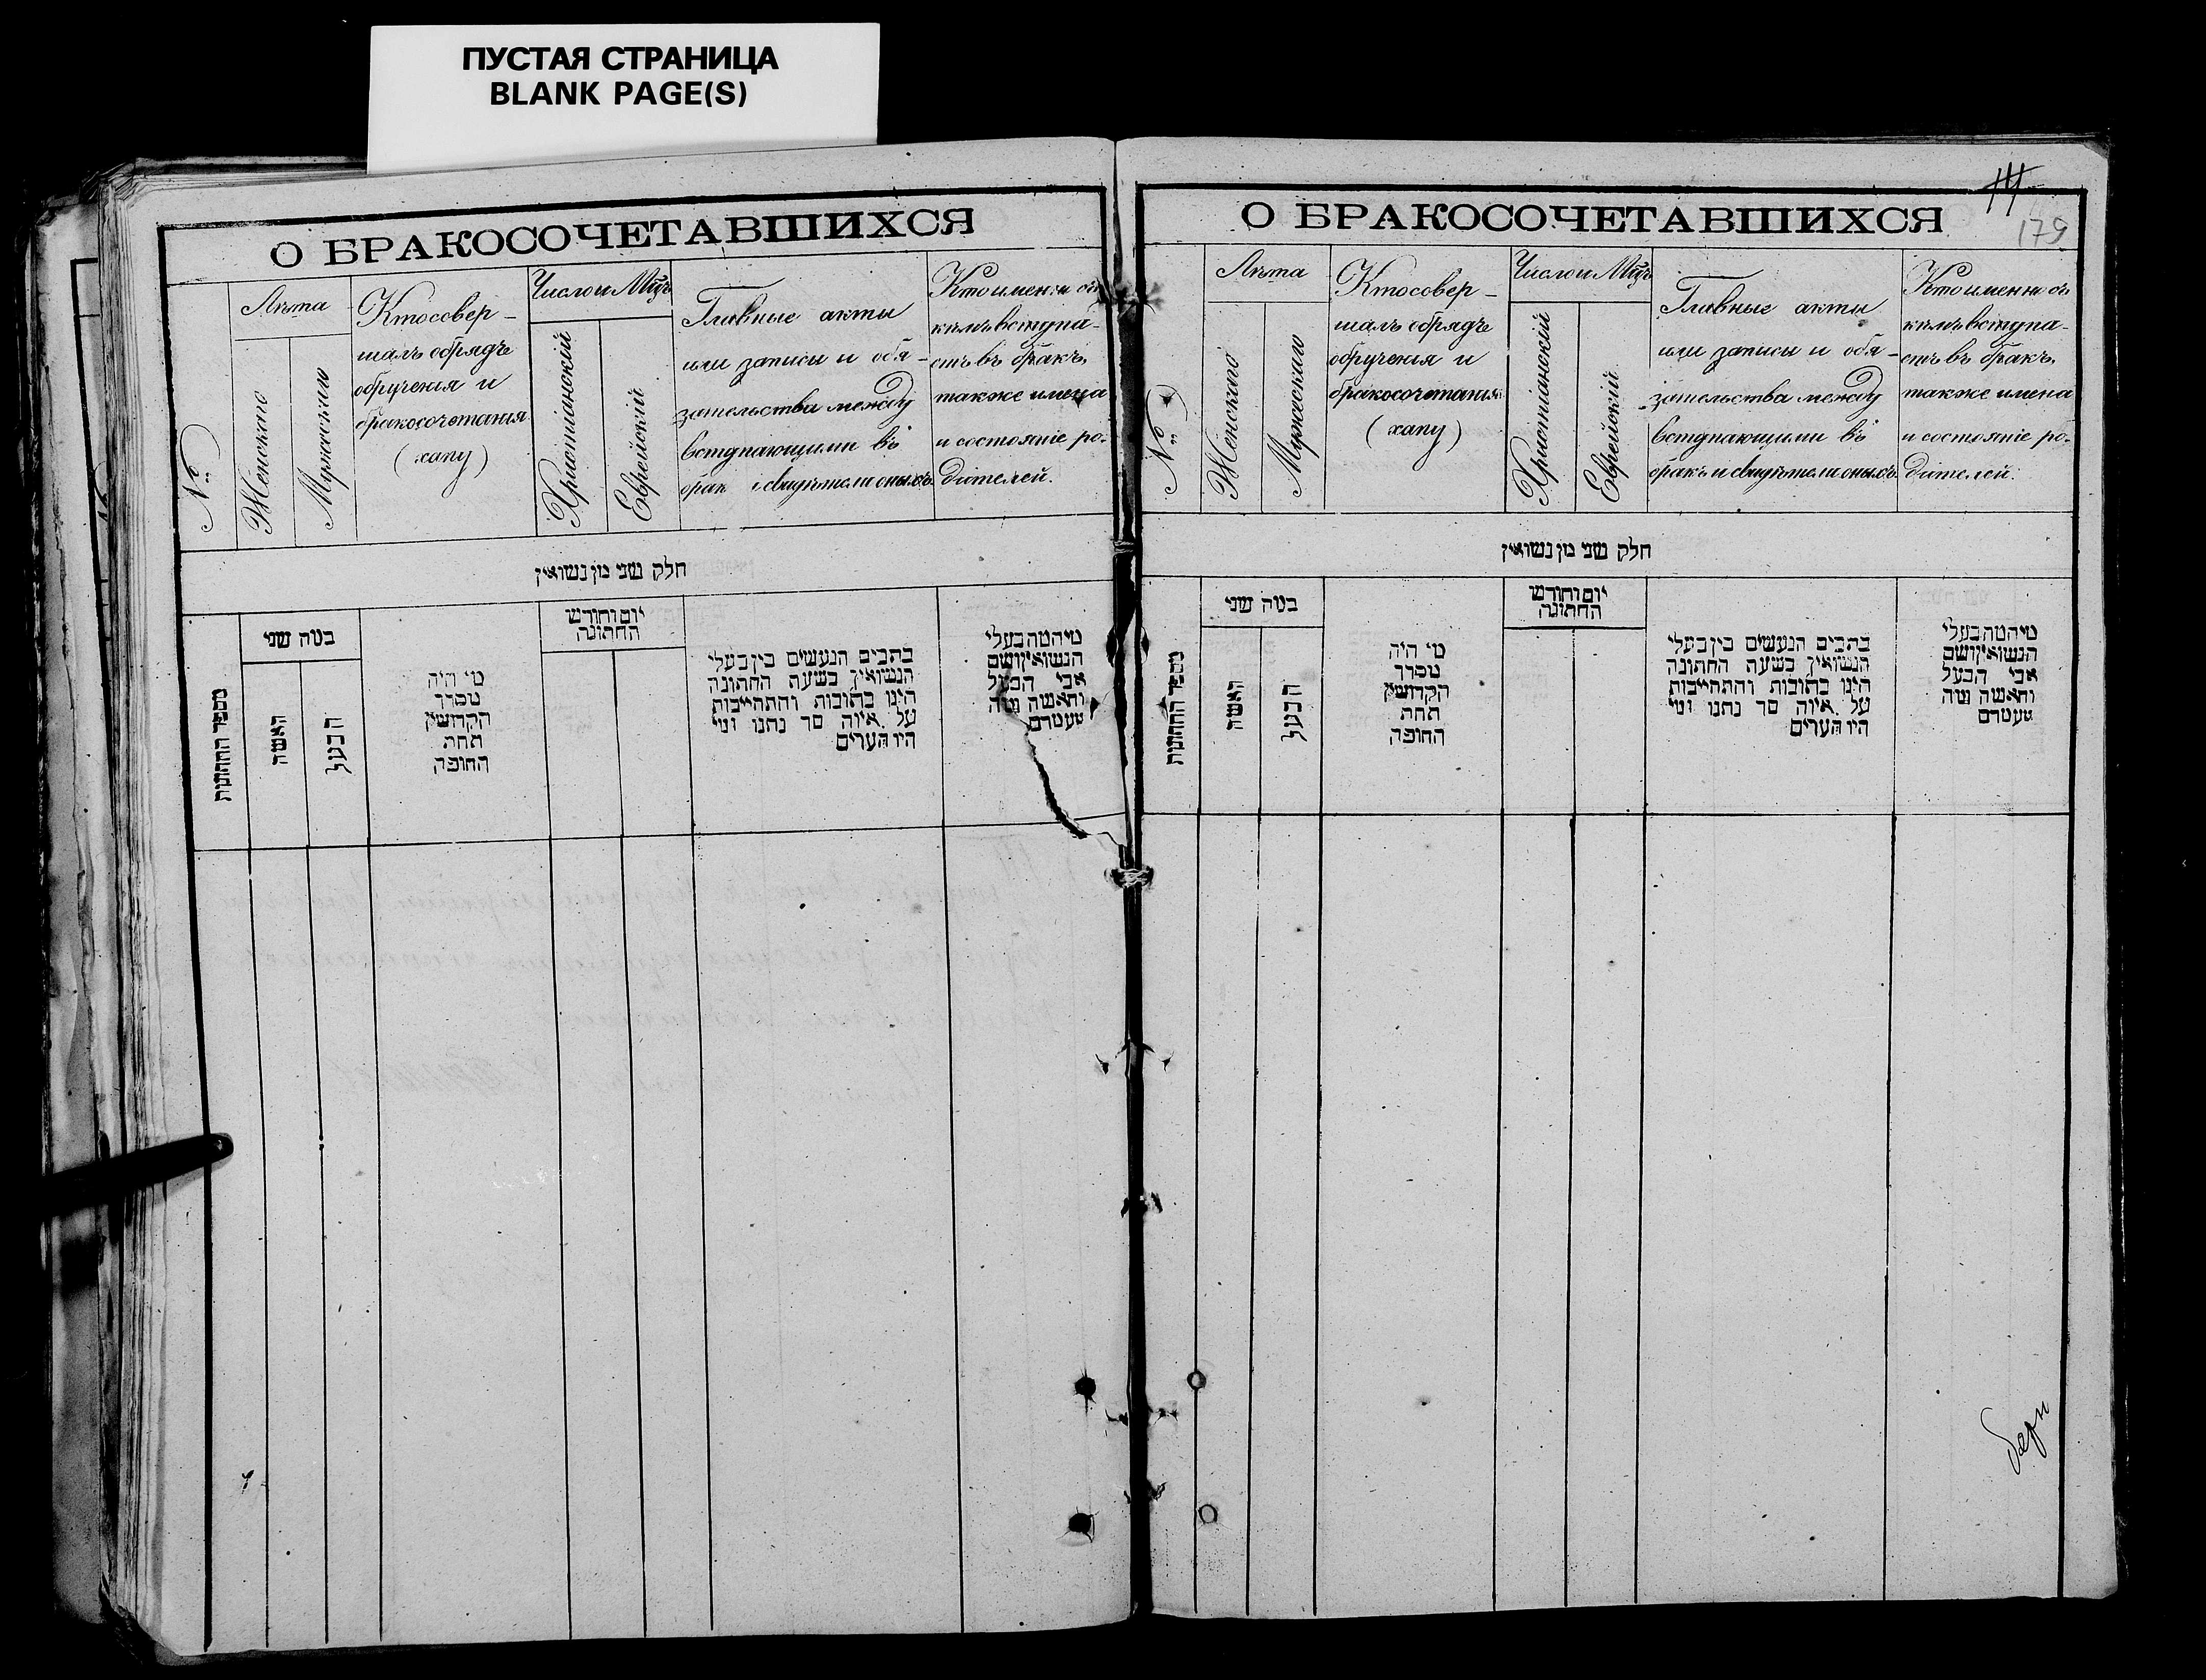 ПУСТАЯ СТРАНИЦА
BLANK PAGE(S)
О БРАКОСОЧЕТАВШИХСЯ
№
Лѣта
Женскаго
Мужескаго
Кто совер-
шалъ обрядъ
обрученія и
бракосочетанія
(хапу)
Число и Мцъ
Христіанскій
Еврейскій
Главные акты
или записи и обя-
зательства между
вступающими въ
брак и свидѣтели оныхъ
Кто именно съ
кѣмъ вступа-
етъ въ бракъ,
также имена
и состояніе ро-
дителей.
חלק שני מן נשואין
מספר החתונות
במה שני
האשה
הבעל
מי היה
מסדר
הקדושין
תחת
החופה
יום וחודש
החתונה
כתבים הנעשים בין בעלי
הנשואין בשעת החתונה
היינו כתובות והתחייבות
על איזה סך נתנו ומי
היו העדים
מי המה בעלי
הנשואין ושם
אבי הבעל
והאשה ומה
מעמדם
О БРАКОСОЧЕТАВШИХСЯ
179
№
Лѣта
Женскаго
Мужескаго
Кто совер-
шалъ обрядъ
обрученія и
бракосочетанія
(хапу)
Число и Мцъ
Христіанскій
Еврейскій
Главные акты
или записи и обя-
зательства между
вступающими въ
бракъ и свидѣтели оныхъ
Кто именно съ
кѣмъ вступа-
етъ въ бракъ,
также имена
и состояніе ро-
дителей.
חלק שני מן נשואין
מספר החתונות
במה שני
האשה
הבעל
מי היה
מסדר
הקדושין
תחת
החופה
יום וחודש
החתונה
כתבים הנעשים בין בעלי
הנשואין בשעת החתונה
היינו כתובות והתחייבות
על איזה סך נתנו ומי
היו העדים
מי המה בעלי
הנשואין ושם
אבי הבעל
והאשה ומה
מעמדם